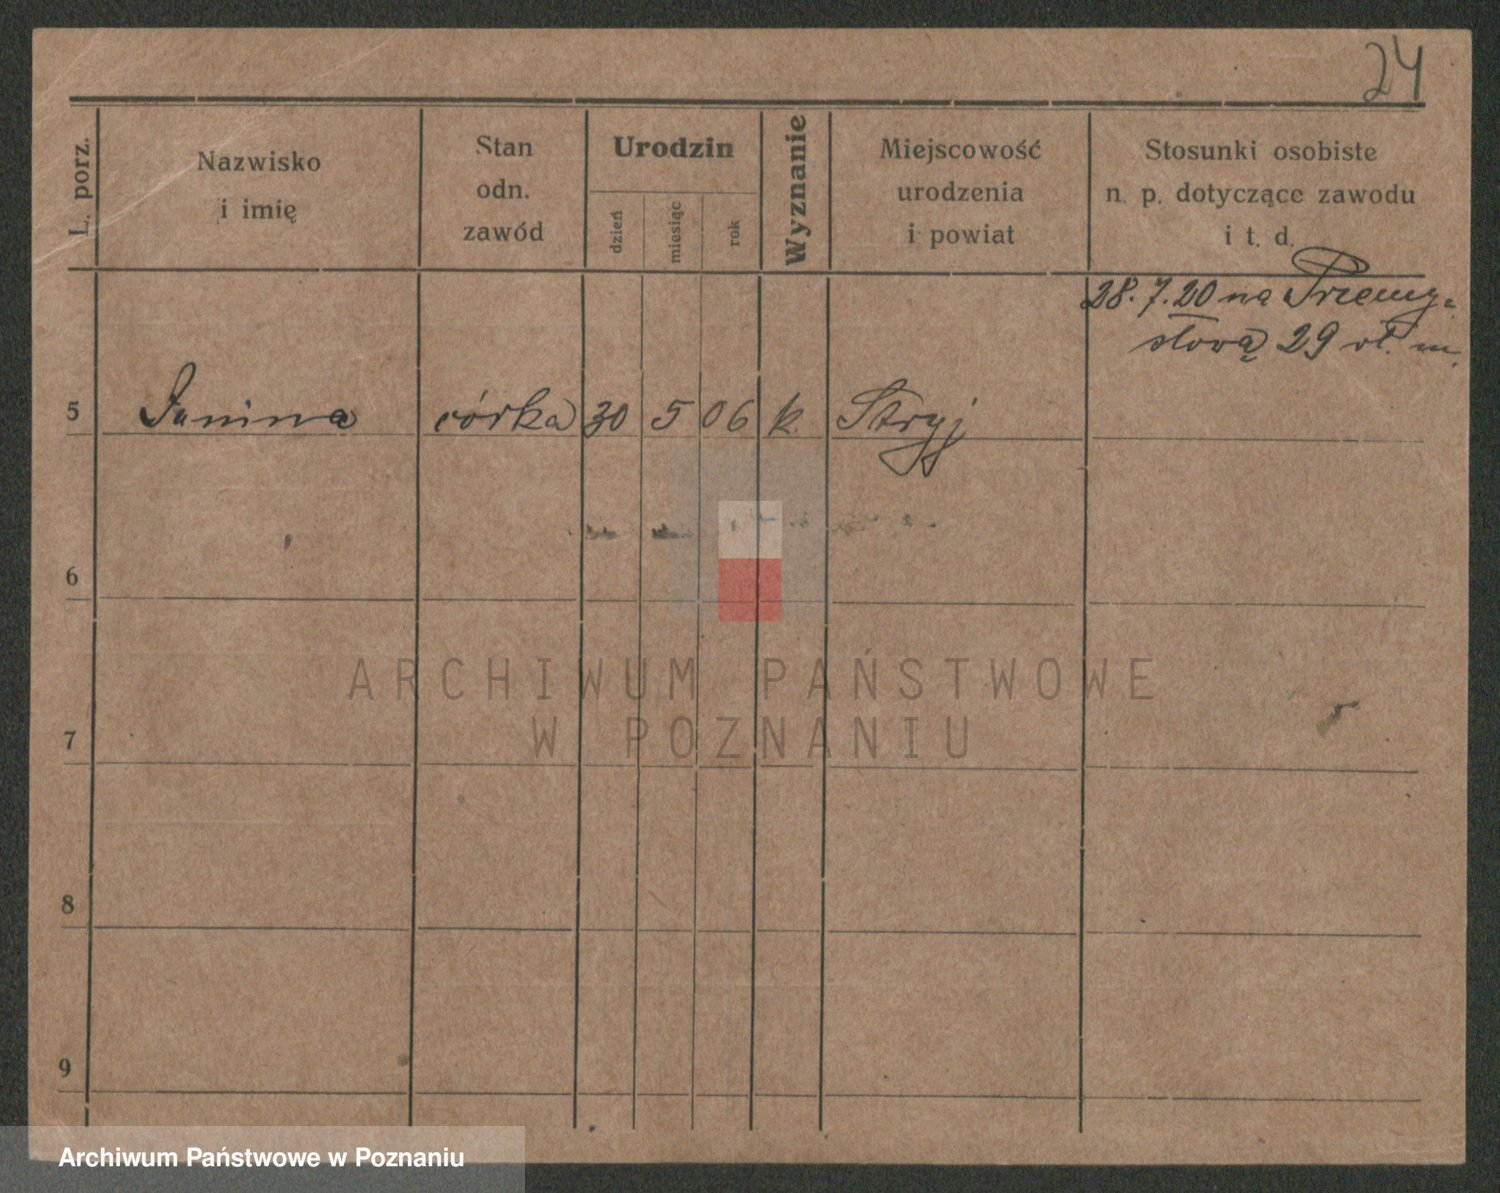 24
L. porz.
Nazwisko
i imię
Stan
odn.
zawód
Urodzin
dzień
miesiąc
rok
Wyznanie
Miejscowość
urodzenia
i powiat
Stosunki osobiste
n. p. dotyczące zawodu
i t. d.
28.7.20 na Przemy-
słową 29 vl. m.
5 Janina córka 30 5 06 k. Stryj
6
7
8
9
ARCHIWUM PAŃSTWOWE
W POZNANIU
Archiwum Państwowe w Poznaniu